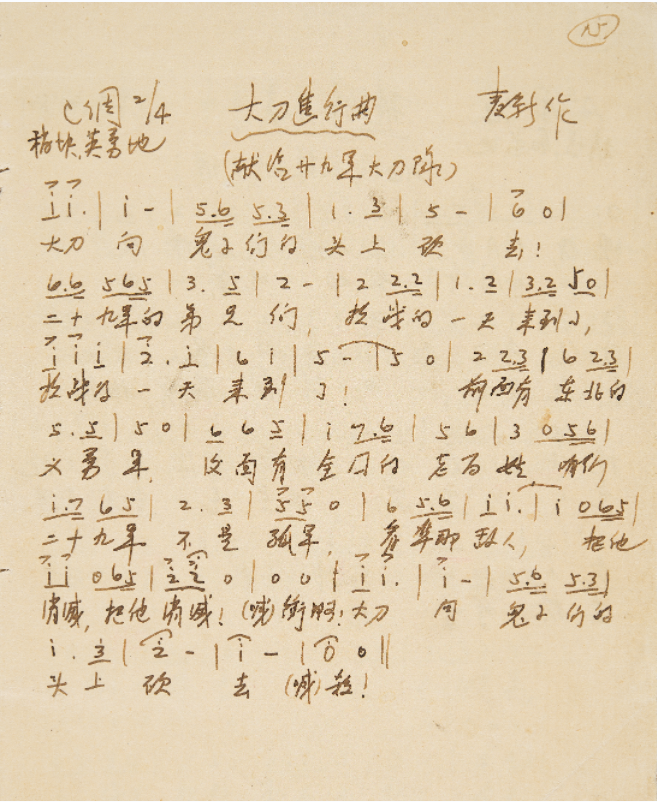 C调 2/4 大刀进行曲 麦新作
稍快、英勇地
(献给廿九军大刀队)
i i. | i - | 5.6 5.3 | 1. 3 | 5 - | 6 0 |
大刀 向 鬼子们的 头上 砍 去!
6.6 565 | 3. 5 | 2 - | 2 2.2 | 1. 2 | 3.2 50 |
二十九军的弟兄们, 抗战的一天来到了,
i i i | 2. i | 6 i | 5 - | 5 0 | 2 2.3 | 6 2.3 |
抗战的一天来到了! 前面有东北的
5. 5 | 5 0 | 6 6 5 | i 7.6 | 5 6 | 3 0 56 |
义勇军, 后面有全国的老百姓, 咱们
i.7 65 | 2. 3 | 5 5 0 | 6 5.6 | i i. | i 065 |
二十九军不是孤军, 看准那敌人, 把他
i i 065 | 2 2 0 | 0 0 | i i. | i - | 5.6 5.3 |
消灭, 把他消灭! (喊)冲啊! 大刀 向 鬼子们的
i. 3 | 2 - | i - | i 0 ||
头上 砍 去 (喊)杀!